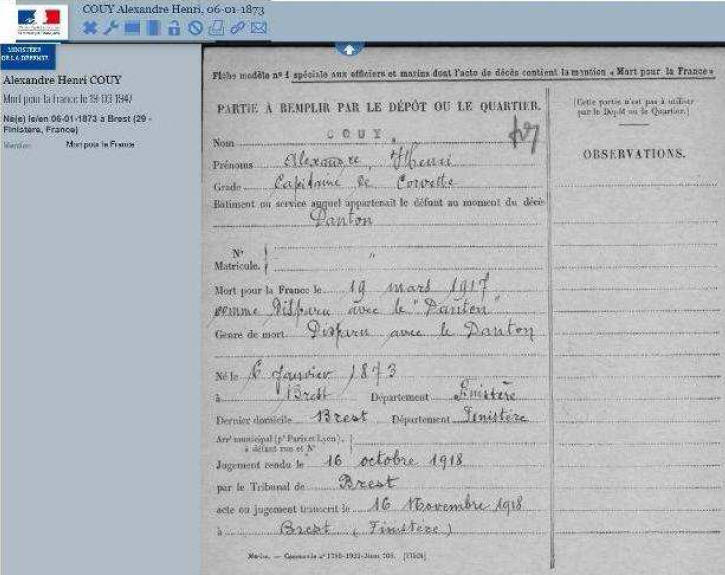 COUY Alexandre Henri, 06-01-1873
MINISTÈRE
DE LA DÉFENSE
Alexandre Henri COUY
Mort pour la france le 19-03-1947
Né(e) le/en 06-01-1873 à Brest (29 -
Finistère, France)
Mention Mort pour la France
Fiche modèle n° 1 spéciale aux officiers et marins dont l'acte de décès contient la mention « Mort pour la France »
PARTIE À REMPLIR PAR LE DÉPÔT OU LE QUARTIER.
Nom COUY,
Prénoms Alexandre, Henri
Grade Capitaine de Corvette
Bâtiment ou service auquel appartenait le défunt au moment du décès
Danton
N°
Matricule. "
Mort pour la France le 19 mars 1917
comme Disparu avec le "Danton"
Genre de mort Disparu avec le Danton
Né le 6 Janvier 1873
à Brest Département Finistère
Dernier domicile Brest Département Finistère
Arrt municipal (pr Paris et Lyon),
à défaut rue et N°
Jugement rendu le 16 octobre 1918
par le Tribunal de Brest
acte ou jugement transcrit le 16 Novembre 1918
à Brest (Finistère)
(Cette partie n'est pas à utiliser
par le Dépôt ou le Quartier.)
OBSERVATIONS.